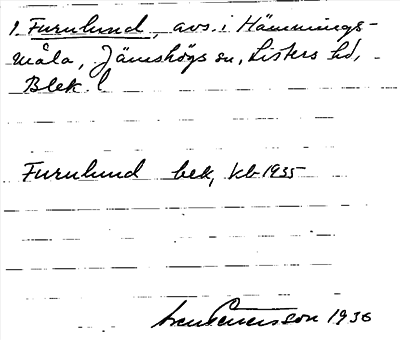 1. Furulund, avs. i Hämnings-
måla, Jämshögs sn, Listers hd,
Blek. l
Furulund bek, kb 1935
1936